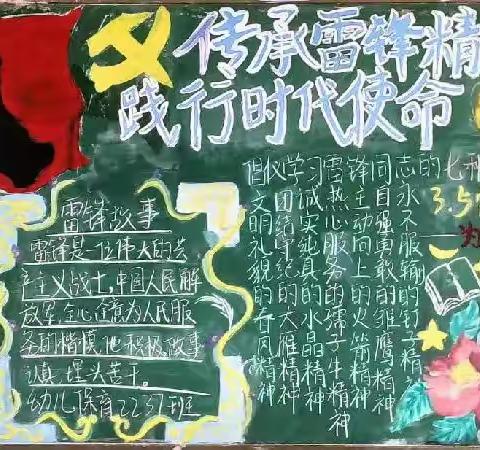 传承雷锋精
践行时代使命
雷锋故事
雷锋是一位伟大的共
产主义战士,中国人民解
放军,全心全意为人民服
务的楷模,他积极做事
认真,埋头苦干。
幼儿保育2237班
倡仪学习雷锋同志的七种
文明礼貌的春风精神
团结守纪的大雁精神
诚实纯真的水晶精神
热心服务的孺子牛精神
主动向上的火箭精神
自强勇敢的雏鹰精神
永不服输的钉子精神
3.5